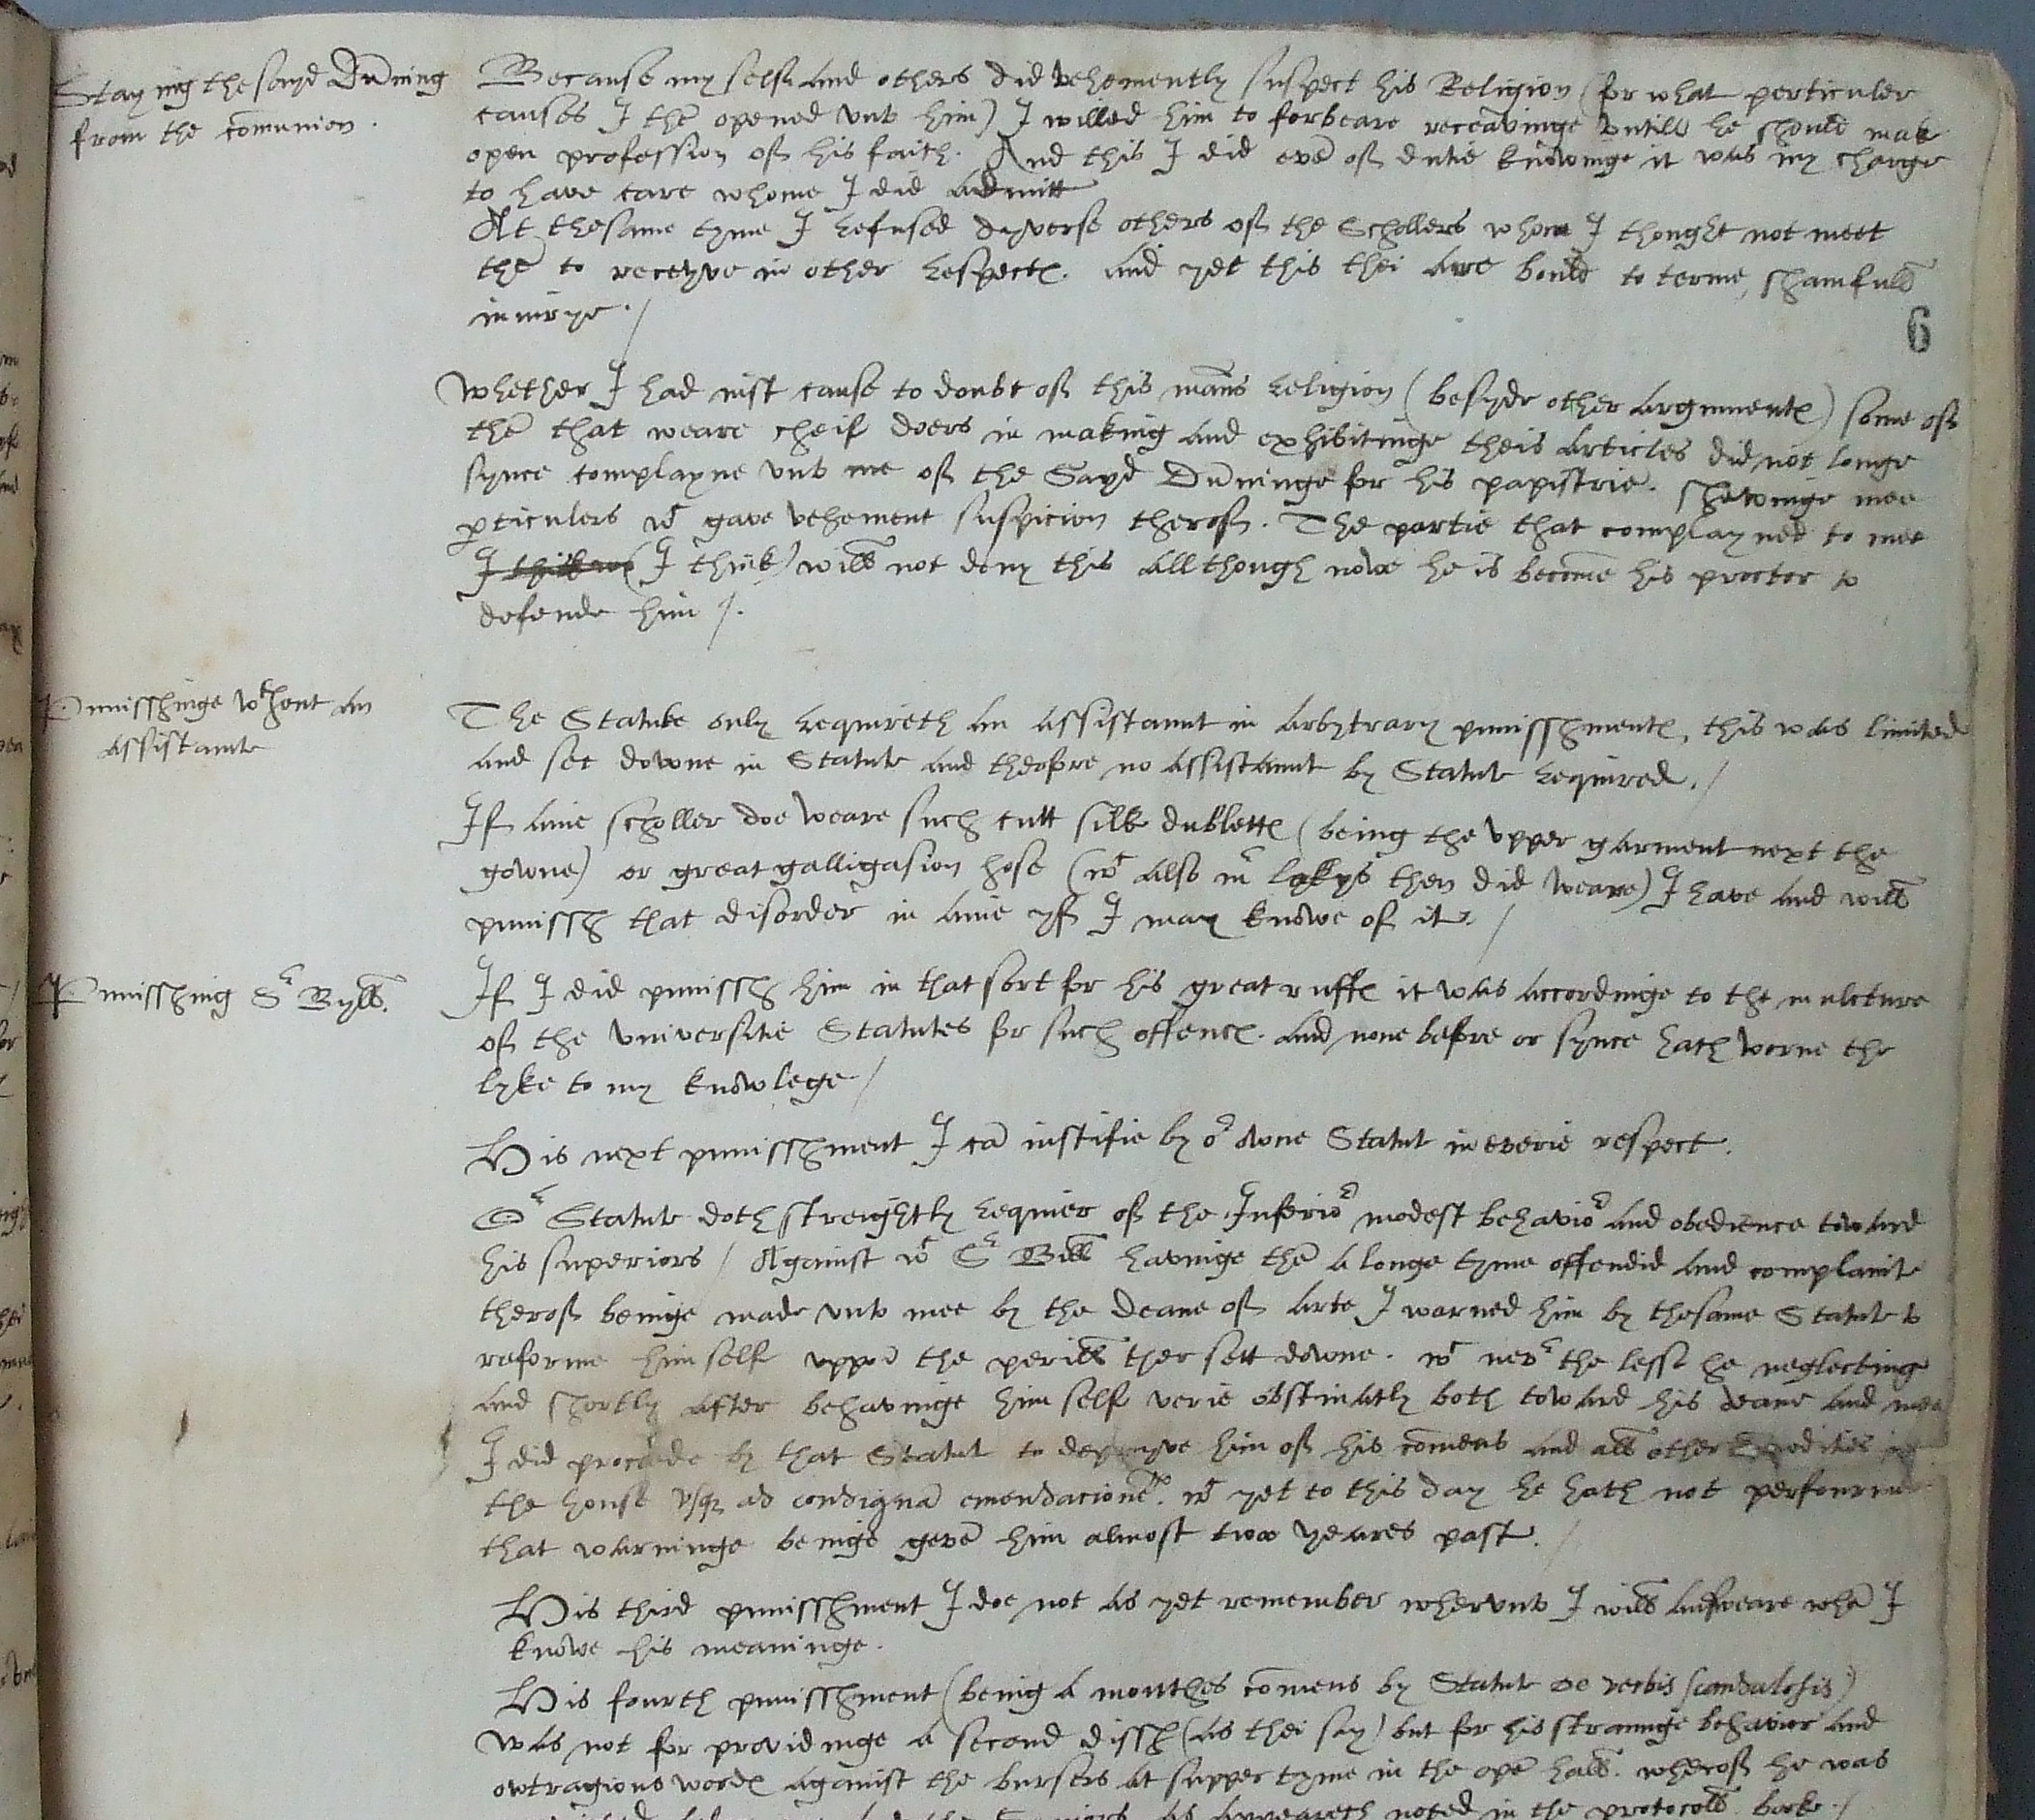 Staying the sayd Dūning
from the comunion.
Because my self and others did vehemently suspect his Religion (for what perticuler
causes I thē opened vnto him) I willed him to forbeare receavinge vntill he should mak
open profession of his faith. And this I did evē of dutie knowinge it was my charge
to have care whome I did admitt
At thesame tyme I refused dyverse others of the Schollers whom I thought not meet
thē to receyve in other respectes. and yet this thei are bould to terme, shamfull
iniurye./
6
Whether I had iust cause to doubt of this mans religion (besyde other argumentes) some of
thē that weare cheif doers in making and exhibitinge theis articles did not longe
synce complayne vnto me of the Sayd Dūninge for his papistrie. shewinge mee
pticulers wch gave vehement suspicion therof. The partie that complayned to mee
I think (I think) will not deny this allthough nowe he is become his proctor to
defende him /.
Punisshinge wthout an
assistante
The Statute only requireth an assistaunt in arbytrary punisshmentes, this was limited
and set downe in Statute and therfore no assistaunt by Statute required./
If anie scholler doe weare such cutt silke dublettes (being the vpper garment next the
gowne) or great galligasion hose (wch also mr then did weare) I have and will
punissh that disorder in anie yf I may knowe of it./
Punisshing Sr Bylls.
If I did punissh him in that sort for his great ruffes it was accordinge to the mulcture
of the vniversitie Statutes for such offences. and none before or synce hath worne the
lyke to my knowlege/
His next punisshment I cā iustifie by or owne Statut in everie respect.
Or Statute doth streightly requier of the Inferior modest behavior and obedience toward
his superiors / Against wch Sr Bill havinge thē a longe tyme offendid and complainte
therof beinge made vnto mee by the Deane of arte I warned him by thesame Statute to
reforme himself vppō the perill ther sett downe. wch never the lesse he neglecting
and shortly after behavinge himself verie obstinatly both toward his deane and mee
I did procede by that Statut to depryve him of his comens and all other
the house vsq ad condignā emendacionē. wch yet to this day he hath not perfourmed
that warninge beinge gevē him almost twoo yeares past./
His third punisshment I doe not as yet remember whervnto I will answeare whē I
knowe his meaninge.
His fourth punisshment (being a monthes comens by Statute de verbis scandalosis)
was not for providinge a second dissh (as thei say) but for his straunge behavior and
owtragious wordes against the bursers at supper tyme in the opē hall. wherof he was
as appeareth noted in the protocoll booke./